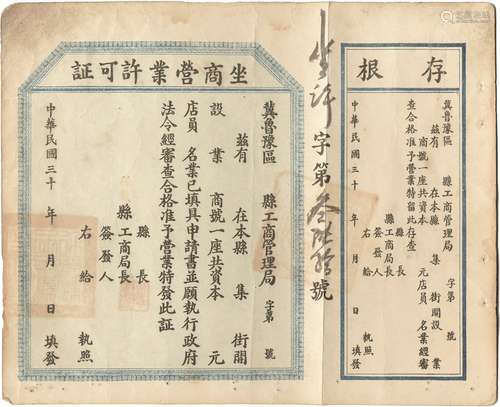 存根
冀魯豫區　縣工商管理局　字第　號
茲有　在本縣　集　街開設　業
商號一座共資本　元店員　名業經審
查合格准予營業特留此存查
縣長
縣工商局長
簽發人
右給　執照
中華民國三十　年　月　日　填發
坐許字第　號
坐商營業許可証
冀魯豫區　縣工商管理局　字第　號
茲有　在本縣　集　街開
設　業　商號一座共資本　元
店員　名業已填具申請書並願執行政府
法令經審查合格准予營業特發此証
縣長
縣工商局長
簽發人
右給　執照
中華民國三十　年　月　日　填發